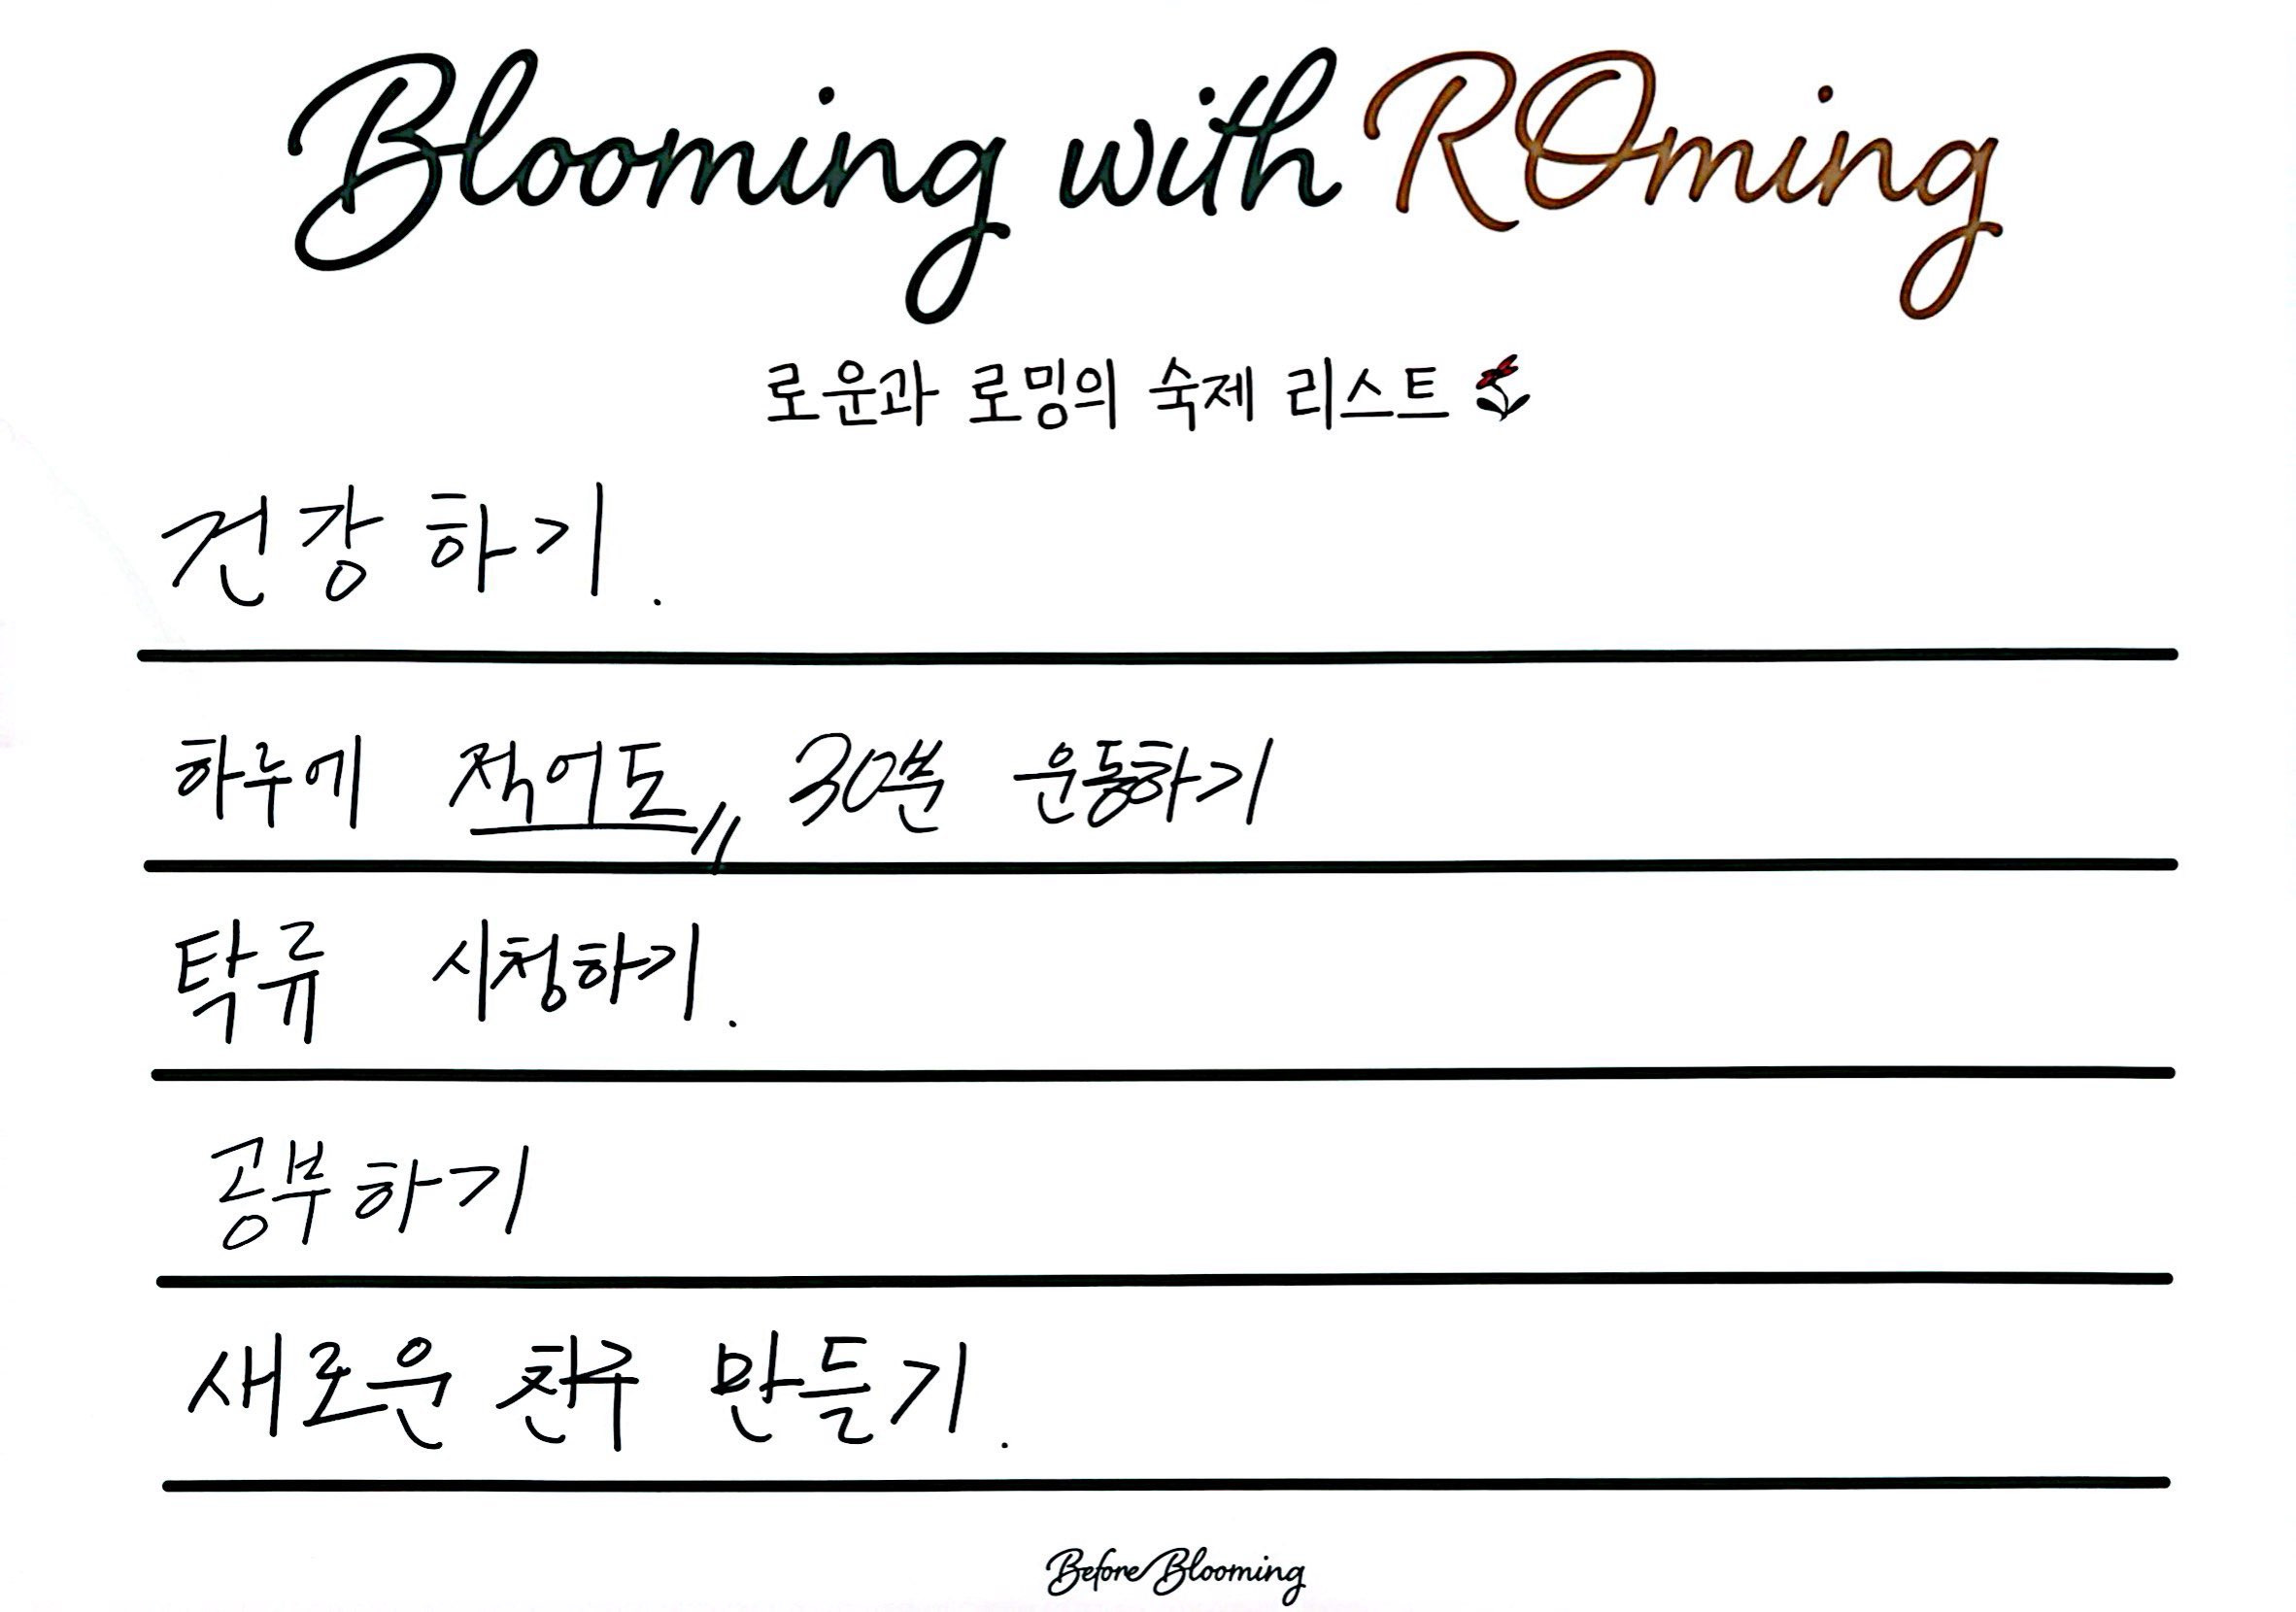 Blooming with ROming
로운과 로밍의 숙제 리스트
건강하기.
하루에 적어도 30분 운동하기
탁류 시청하기.
공부하기
새로운 친구 만들기.
Before Blooming